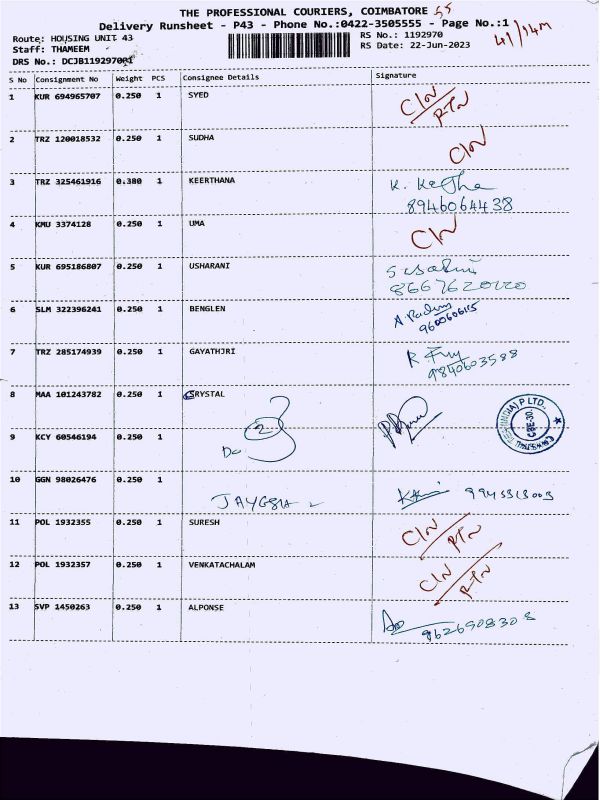 THE PROFESSIONAL COURIERS, COIMBATORE 55
Delivery Runsheet - P43 - Phone No.:0422-3505555 - Page No.:1
Route: HOUSING UNIT 43
RS No.: 1192970
41/14m
Staff: THAMEEM
RS Date: 22-Jun-2023
DRS No.: DCJB119297001
S No Consignment No Weight PCS Consignee Details Signature
1 KUR 694965707 0.250 1 SYED CIN/RTN
2 TRZ 120018532 0.250 1 SUDHA CIN
3 TRZ 325461916 0.380 1 KEERTHANA K.
8946064438
4 KMU 3374128 0.250 1 UMA CIN
5 KUR 695186807 0.250 1 USHARANI
6 SLM 322396241 0.250 1 BENGLEN
7 TRZ 285174939 0.250 1 GAYATHJRI R
9840603588
8 MAA 101243782 0.250 1 CRYSTAL
2
9 KCY 60546194 0.250 1 Do
10 GGN 98026476 0.250 1
11 POL 1932355 0.250 1 SURESH CIN/RTN
12 POL 1932357 0.250 1 VENKATACHALAM CIN/RTN
13 SVP 1450263 0.250 1 ALPONSE
9626908308